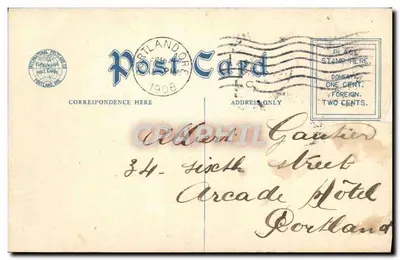 PORTLAND, ORE.
1908
Post Card
PLACE
STAMP HERE
DOMESTIC
ONE CENT.
FOREIGN
TWO CENTS.
CORRESPONDENCE HERE
ADDRESS ONLY
Albert Gautier
34 - sixth street
Arcade Hôtel
Portland